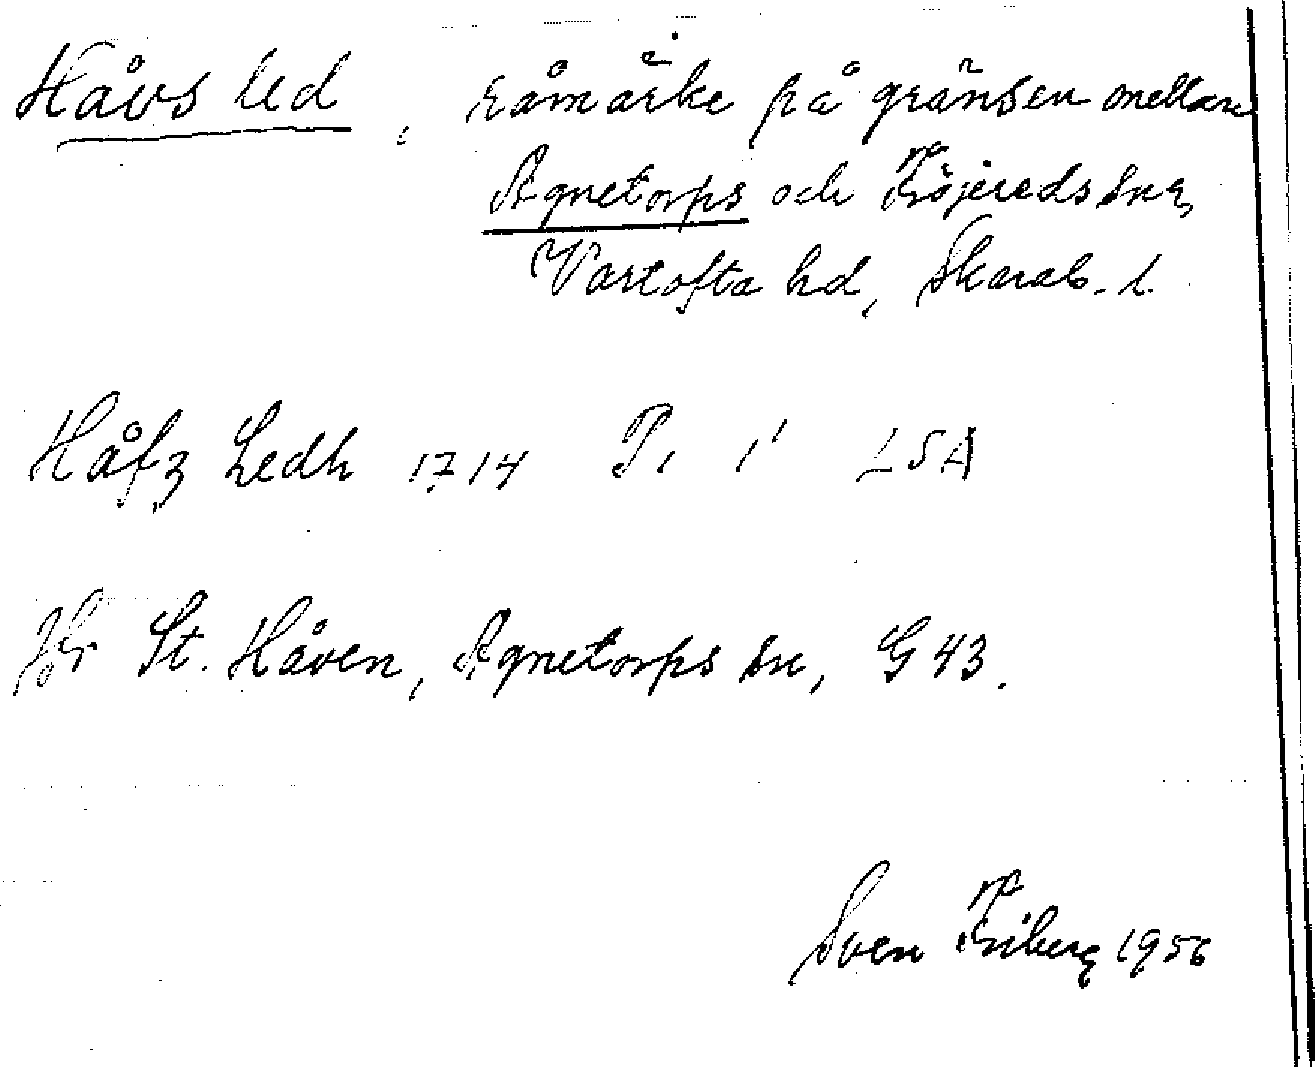 Håvs led, råmärke på gränsen mellan
Agnetorps och Fröjereds snr,
Vartofta hd, Skarab. l.
Håfz Ledh 1714 P. 1' LSA
Jfr St. Håven, Agnetorps sn, G 43.
Sven Friberg 1956